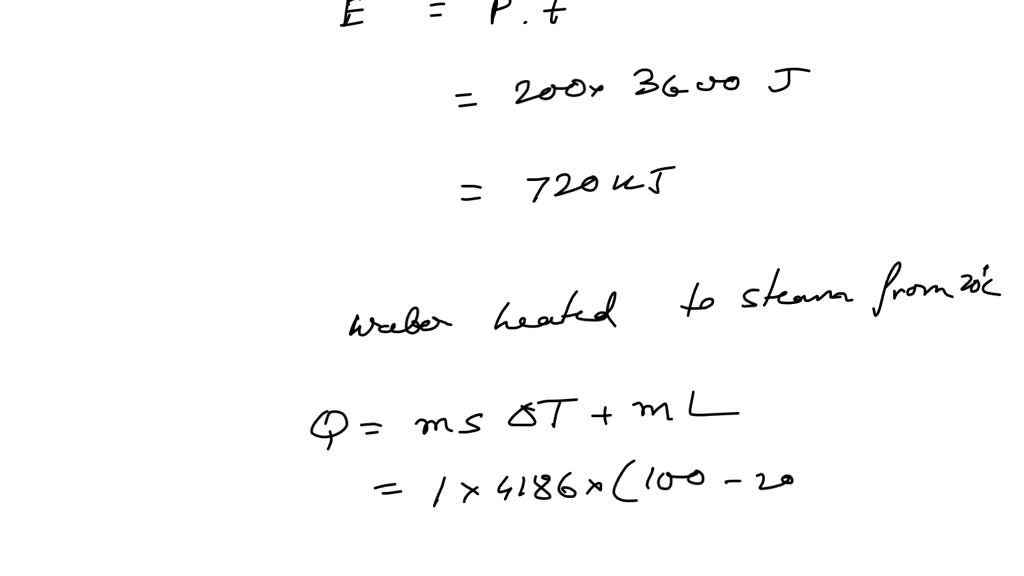 E = P.t
= 200x 3600 J
= 720 kJ
water heated to steam from 20°C
Q = ms ΔT + mL
= 1 x 4186 x (100 - 20